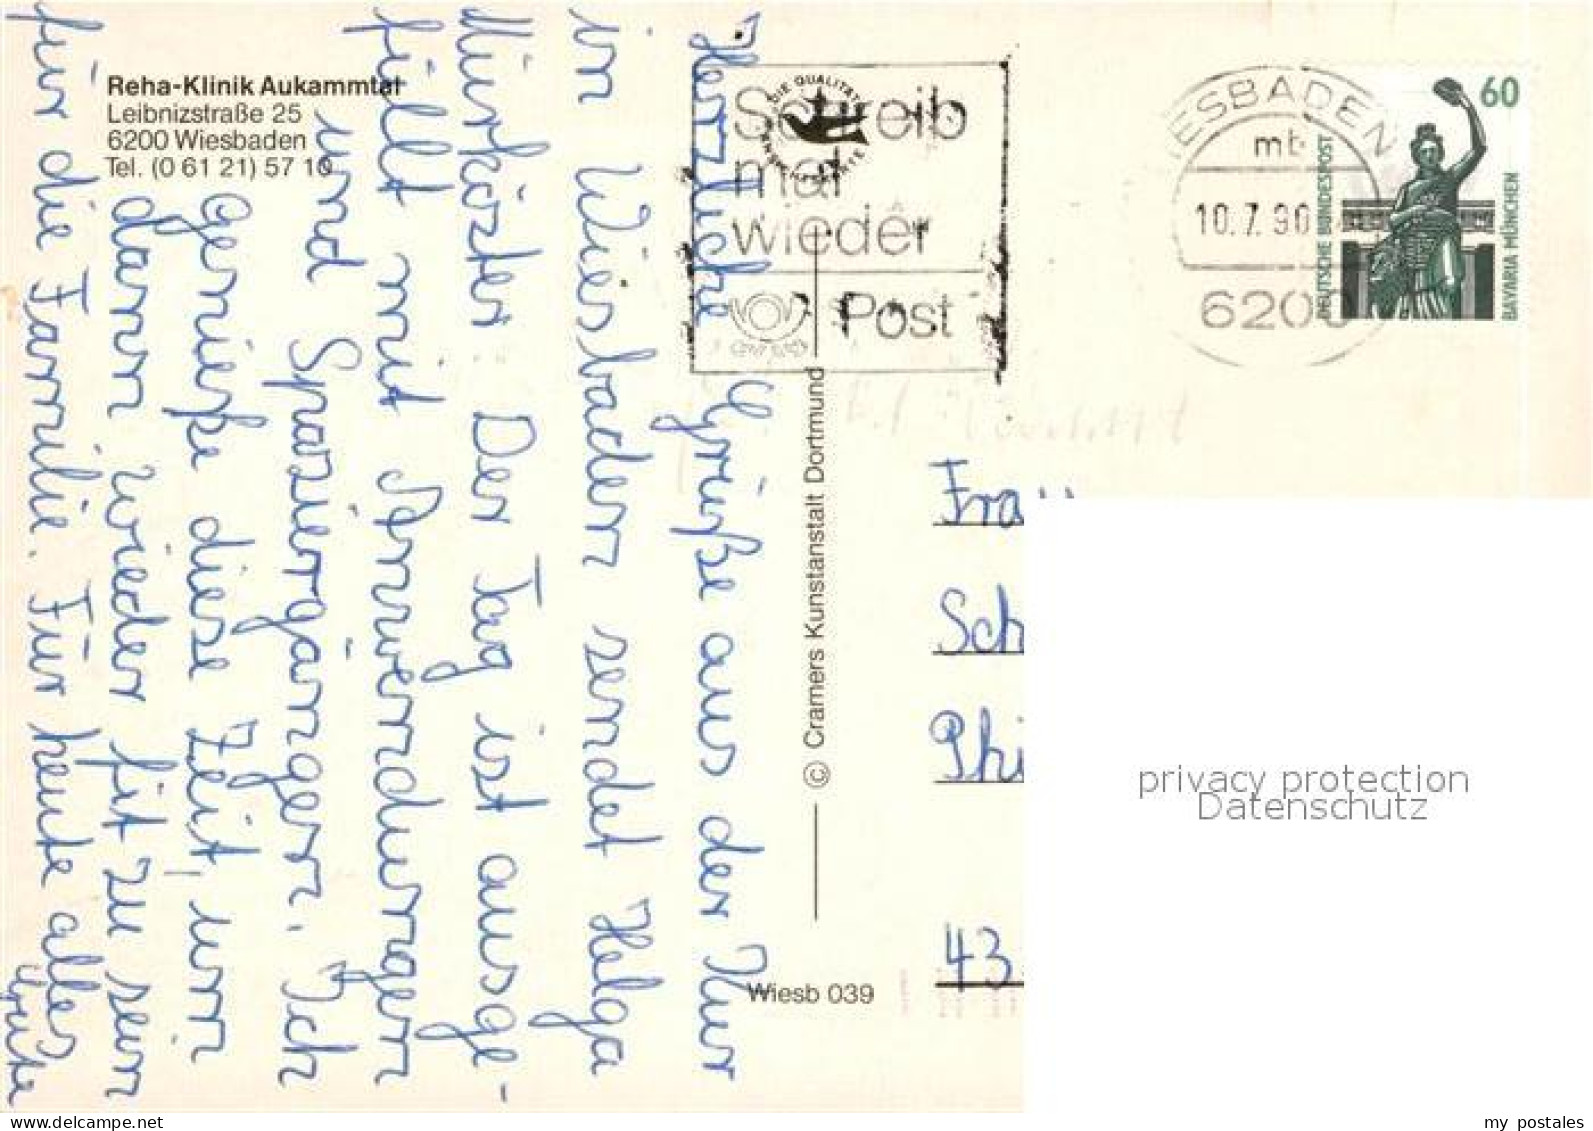 Reha-Klinik Aukammtal
Leibnizstraße 25
6200 Wiesbaden
Tel. (0 61 21) 57 10
Herzliche Grüße aus der Kur
in Wiesbaden sendet Helga
Der Tag ist ausge-
füllt mit Anwendungen
und Spaziergängen. Ich
genieße diese Zeit, um
dann wieder fit zu sein
für die Familie. Für heute alles
Schreib
mal
wieder
Post
DIE QUALITÄT
© Cramers Kunstanstalt Dortmund
Wiesb 039
WIESBADEN
mt
10.7.90
6200
60
DEUTSCHE BUNDESPOST
BAVARIA MÜNCHEN
Frau
Sch
Phi
43
privacy protection
Datenschutz
www.delcampe.net
my postales